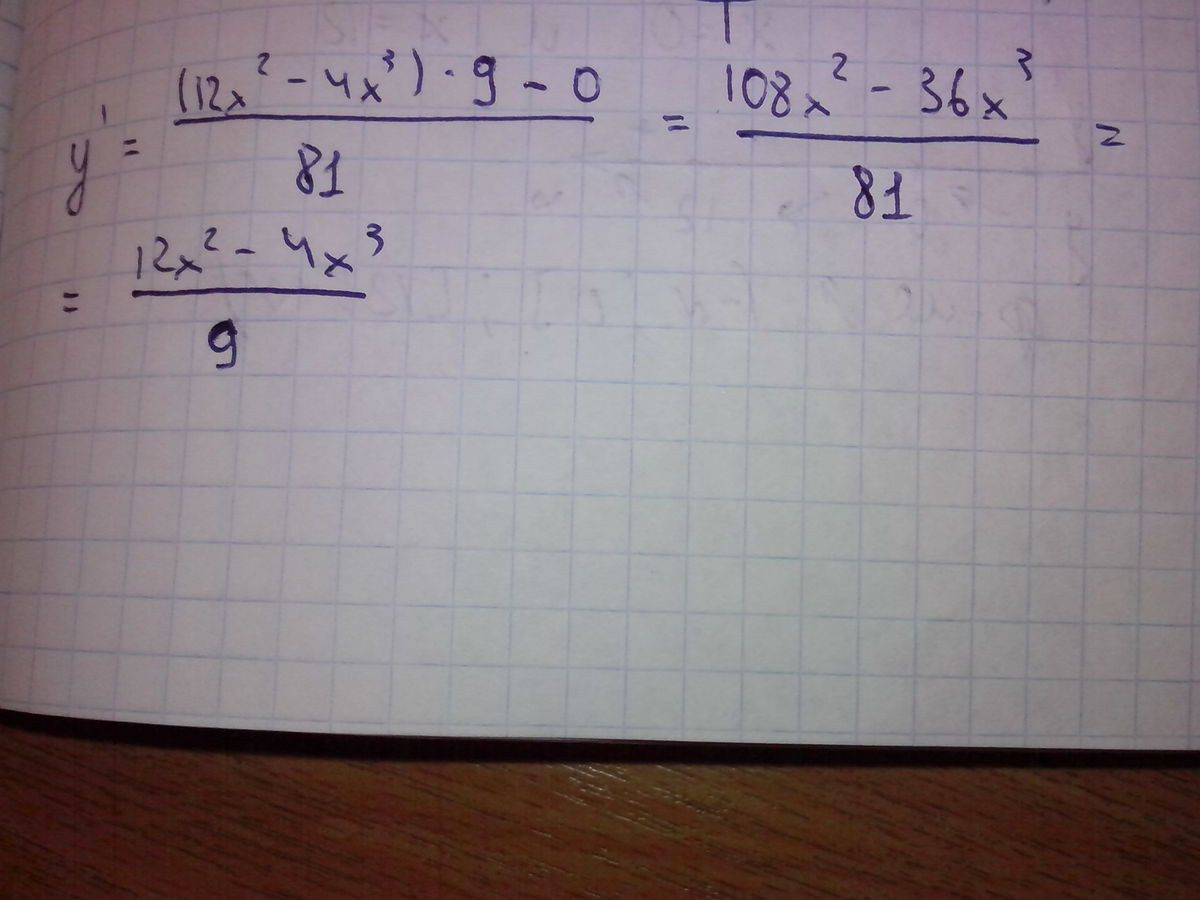 y' = ((12x² - 4x³) · 9 - 0)/81 = (108x² - 36x³)/81 =
= (12x² - 4x³)/9